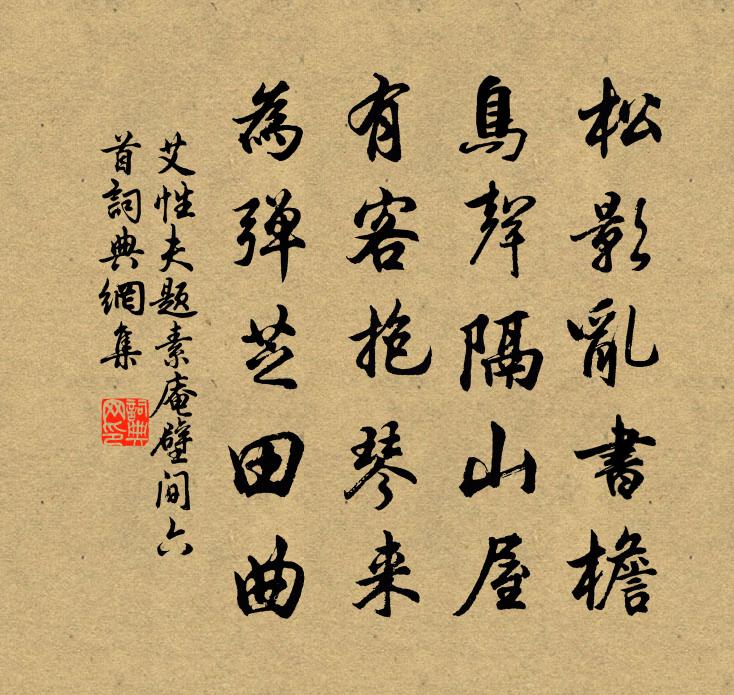 松影亂書檐
鳥聲隔山屋
有客抱琴来
為彈芝田曲
艾性夫題素庵壁间六
首詞典網集
詞典
网印